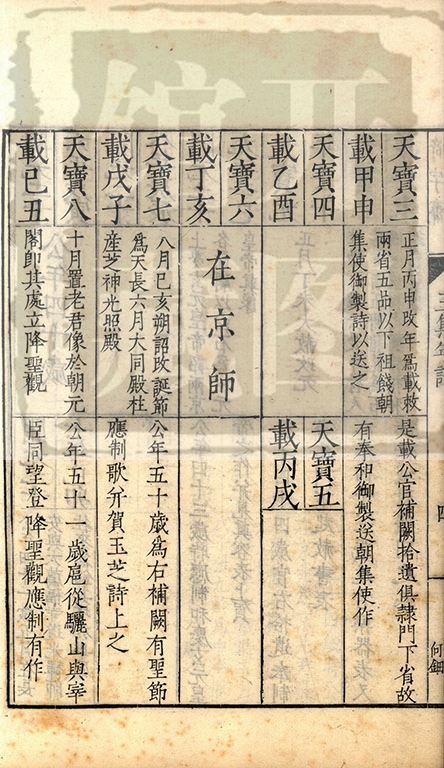 天寶三
載甲申
正月丙申改年爲載敕
兩省五品以下祖餞朝
集使御製詩以送之
是載公官補闕拾遺俱隷門下省故
有奉和御製送朝集使作
天寶四
載乙酉
天寶五
載丙戌
天寶六
載丁亥
在京師
天寶七
載戊子
八月己亥朔詔改誕節
爲天長六月大同殿柱
産芝神光照殿
公年五十歲爲右補闕有聖節
應制歌分賀玉芝詩上之
天寶八
載己丑
十月置老君像於朝元
閣即其處立降聖觀
公年五十一歲扈從驪山與宰
臣同望登降聖觀應制有作
四
何鈿